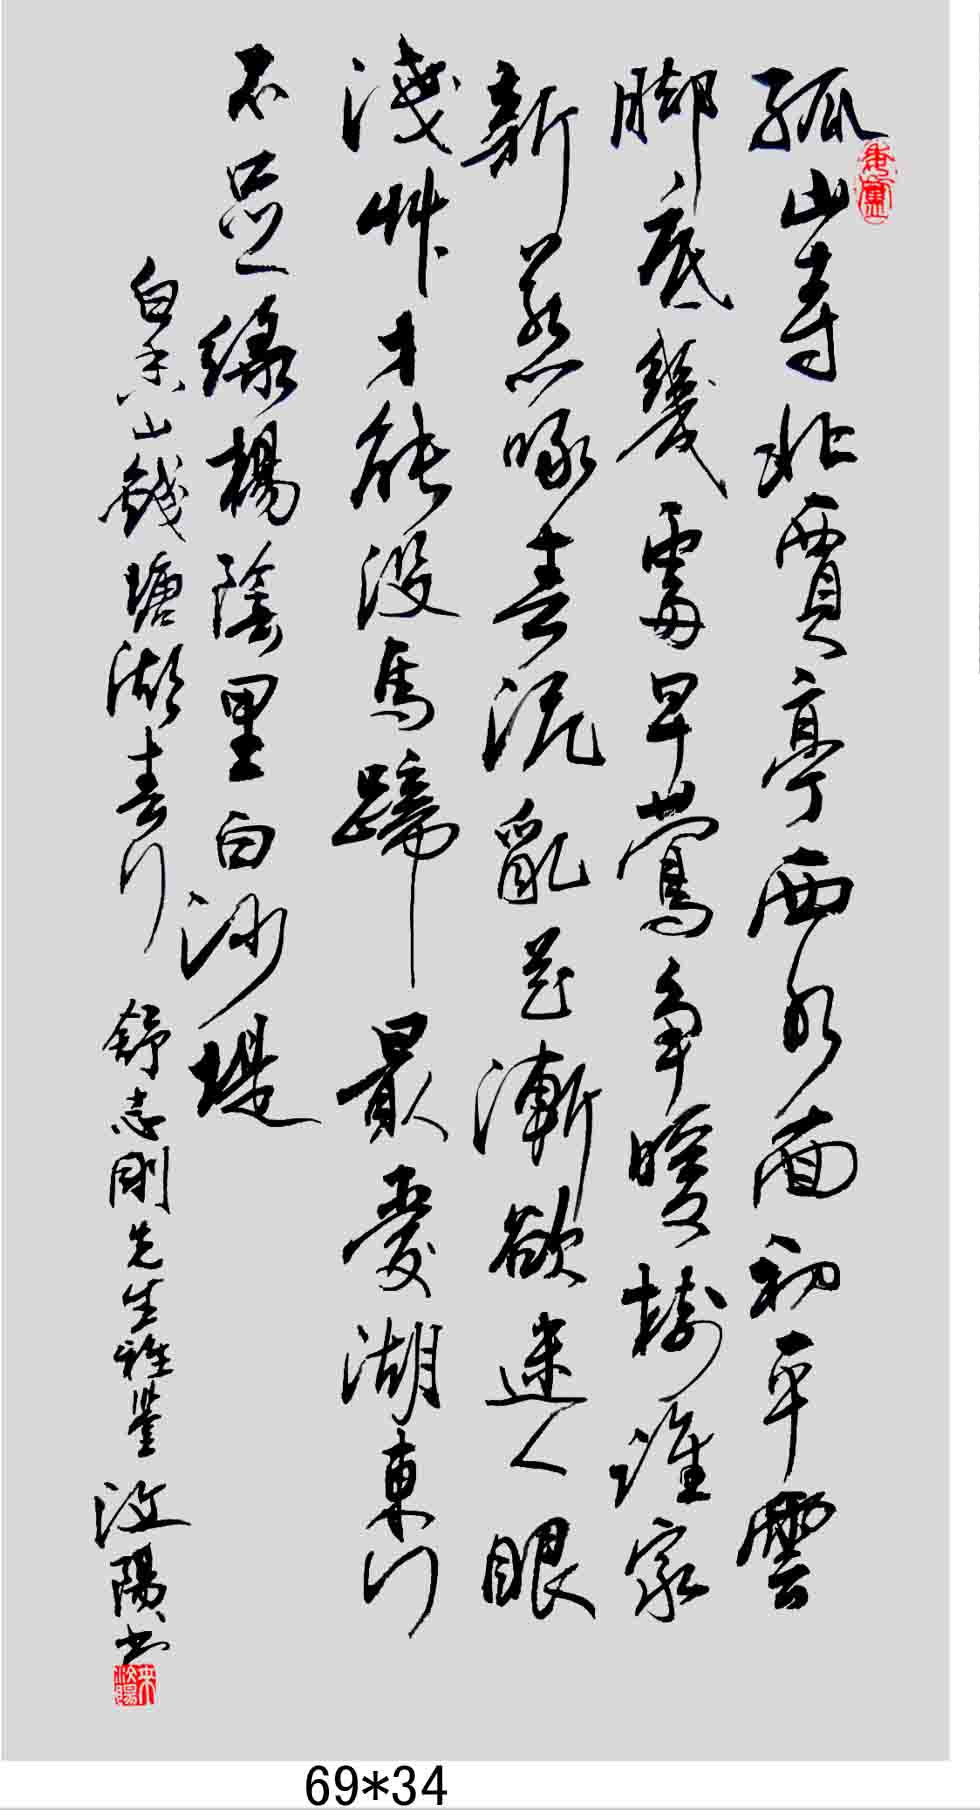 孤山寺北賈亭西水面初平雲
脚底幾處早鶯争暖樹誰家
新燕啄春泥亂花漸欲迷人眼
淺艸才能没馬蹄最愛湖東行
不足綠楊陰里白沙堤
白香山錢塘湖春行 舒志剛先生雅鑒 汶陽书
69*34